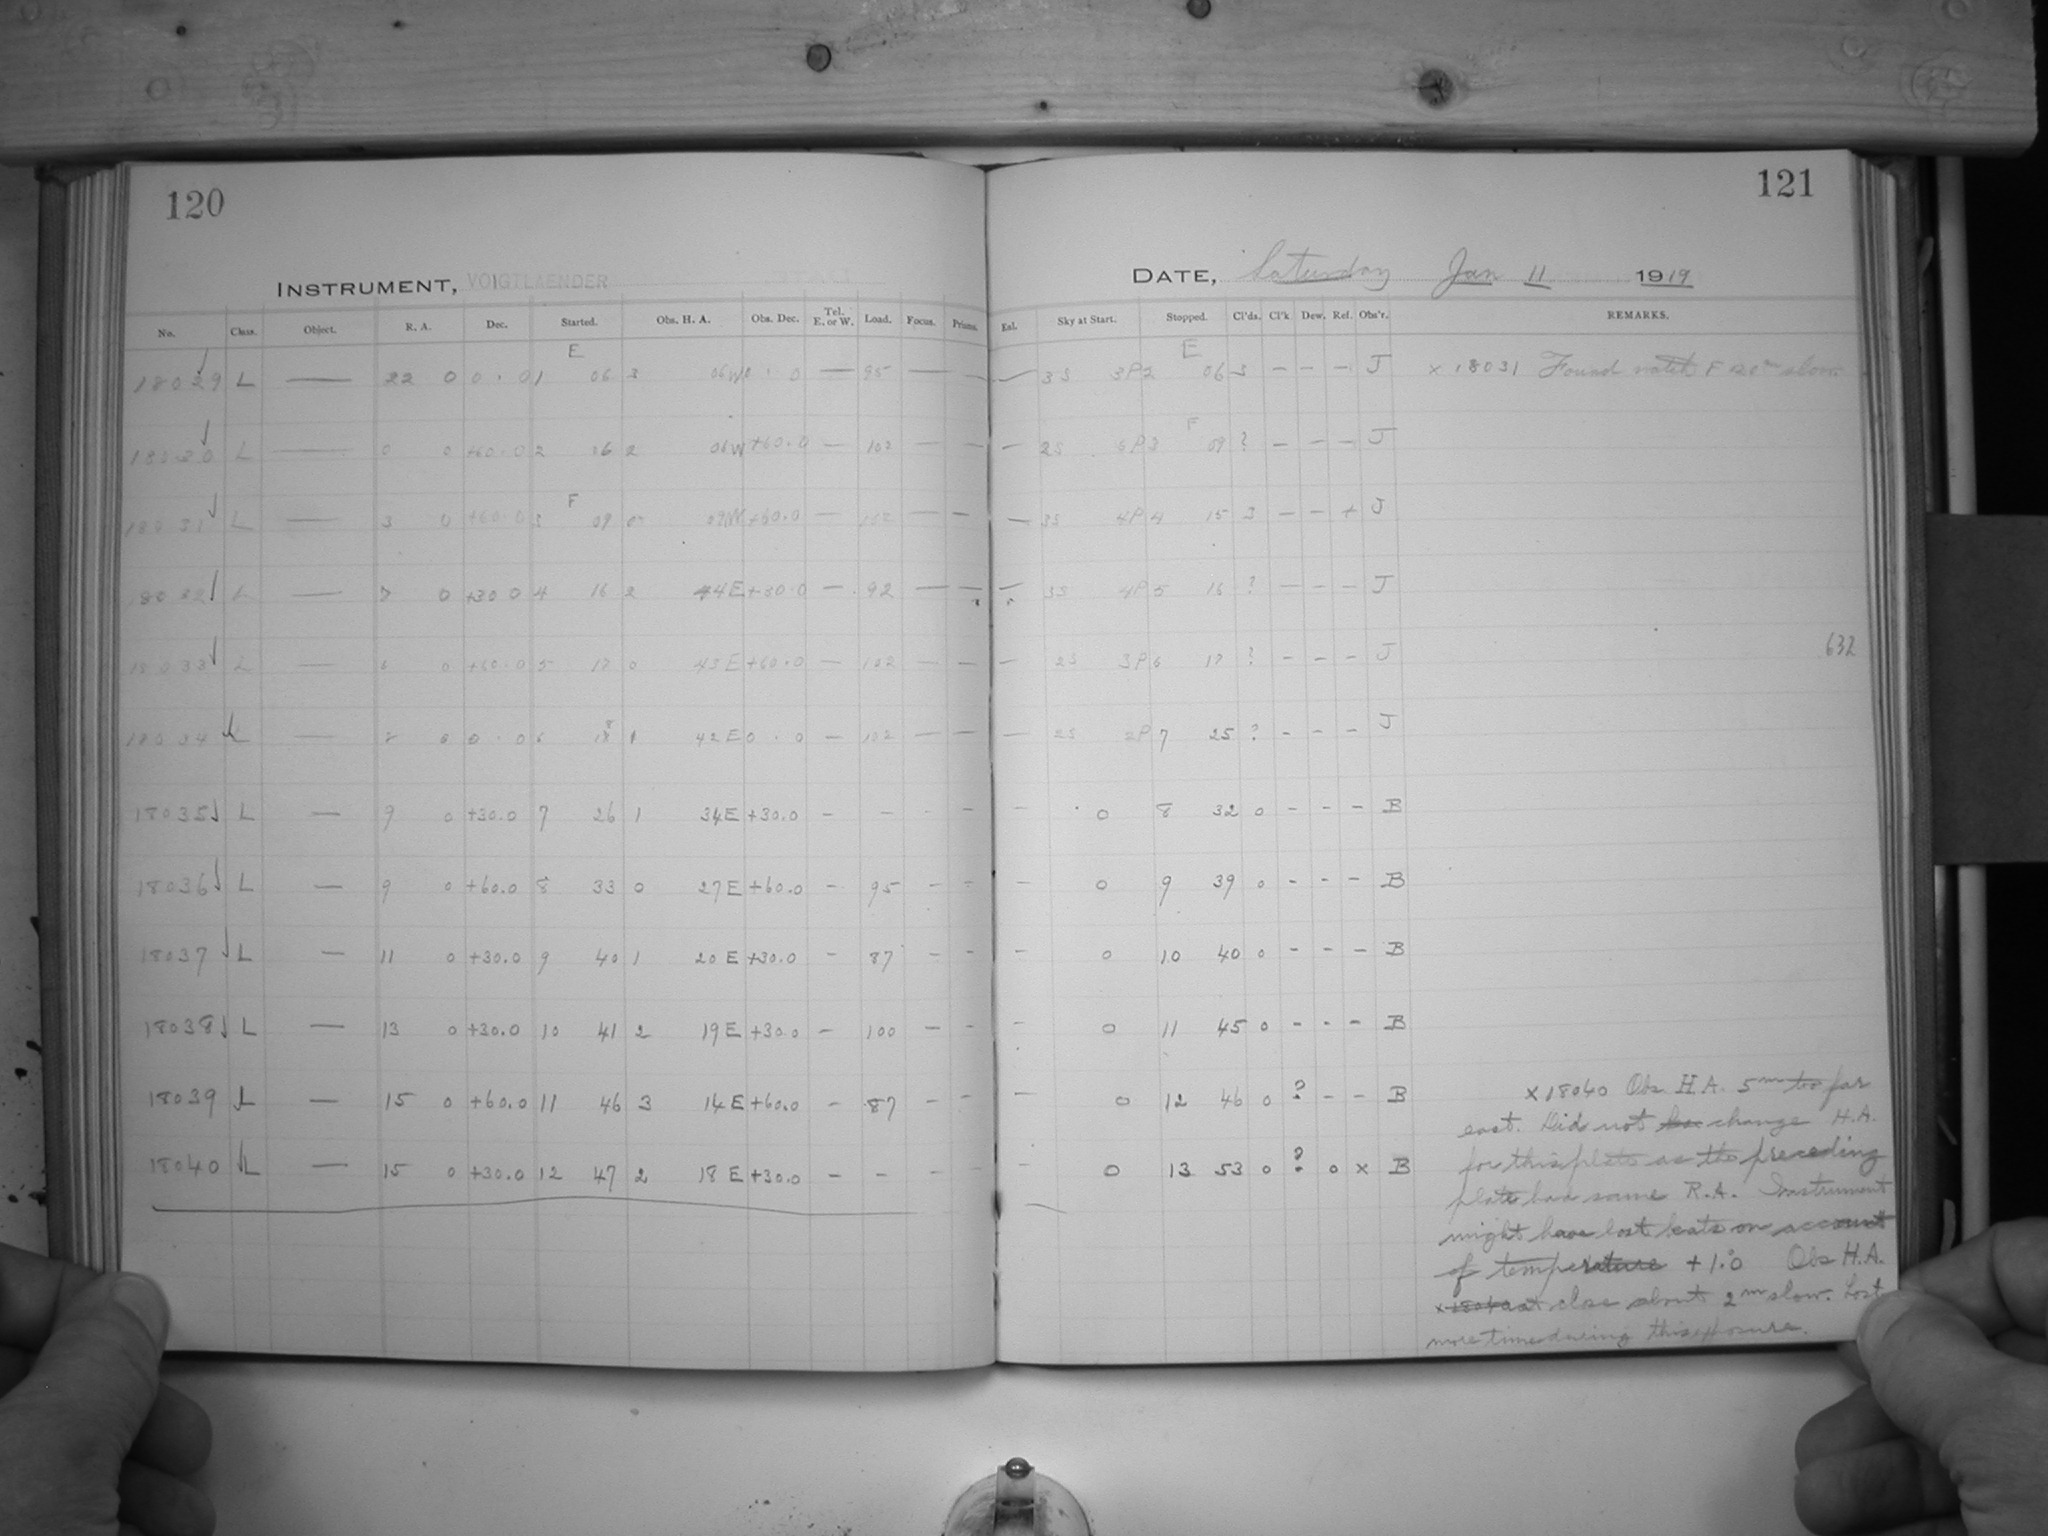 120
121
INSTRUMENT, VOIGTLAENDER
DATE, Saturday Jan 11 1919
No. Class. Object. R. A. Dec. Started. Obs. H. A. Obs. Dec. Tel. E. or W. Load. Focus. Prisms. Eal. Sky at Start. Stopped. Cl'ds. Cl'k Dew. Ref. Obs'r. REMARKS.
E E
18029 L — 22 0 0.0 1 06 3 06W 0.0 — 95 — — — 3S 3P 2 06 3 — — — J x 18031 Found watch F slow.
F
18030 L — 0 0 +60.0 2 06 2 06W +60.0 — 102 — — — 2S 3 09 ? — — — J
F
18031 L — 3 0 +60.0 3 09 0 09W +60.0 — 102 — — — 3S 4P 4 15 3 — — + J
18032 L — 7 0 +30.0 4 16 2 44E +30.0 — 92 — — — 3S 4P 5 16 ? — — — J
18033 L — 6 0 +60.0 5 17 0 43E +60.0 — 102 — — 2S 3P 6 17 ? — — — J
632
18034 L — 8 0 0.0 6 18 1 42E 0.0 — 102 — — — 2S 2P 7 25 ? — — — J
18035 L — 9 0 +30.0 7 26 1 34E +30.0 — — — — — 0 8 32 0 — — — B
18036 L — 9 0 +60.0 8 33 0 27E +60.0 — 95 — — — 0 9 39 0 — — — B
18037 L — 11 0 +30.0 9 40 1 20E +30.0 — 87 — — — 0 10 40 0 — — — B
18038 L — 13 0 +30.0 10 41 2 19E +30.0 — 100 — — — 0 11 45 0 — — — B
18039 L — 15 0 +60.0 11 46 3 14E +60.0 — 87 — — — 0 12 46 0 ? — — B
18040 L — 15 0 +30.0 12 47 2 18E +30.0 — — — 0 13 53 0 ? 0 x B
x 18040 Obs. H.A. 5m too far
east. Did not change H.A.
for this plate as the preceding
plate had same R.A. Instrument
might have lost beats on account
of temperature +1.°0 Obs H.A.
x 18040 at close about 2m slow. Lost
more time during this